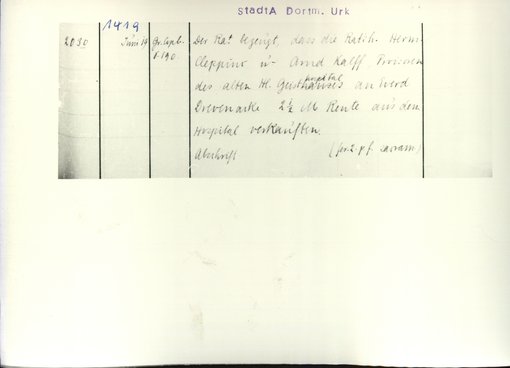 StadtA Dortm. Urk
1419
2030 Juni 19 Gr. Copb. Der Rat bezeugt, dass die Ratsh. Herm.
Cleppinc u. Arnd Kalff, Provisoren
des alten Hl. Geisthospital an Everd
2½ M Rente aus dem
Hospital verkauften.
Abschrift (fer. 2. p. f.